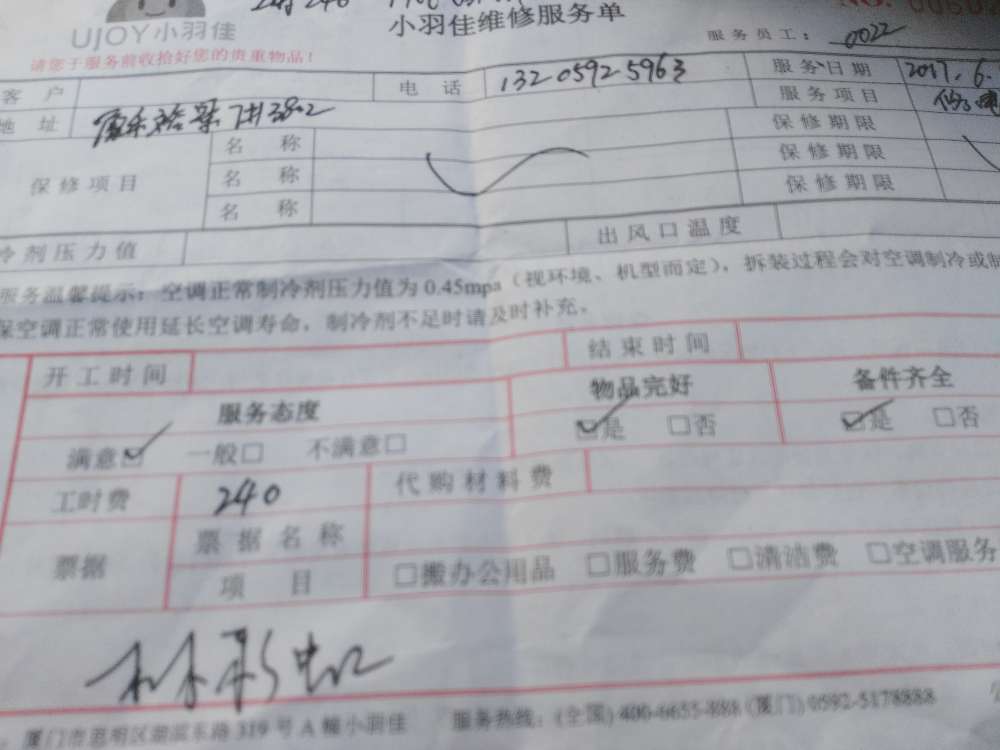 UJOY小羽佳
小羽佳维修服务单
NO.
请您于服务前收拾好您的贵重物品！
服务员工： 0022
客户 电话 13205925963 服务日期 2017.6.
地址 7#3802 服务项目
保修项目 名称 保修期限
名称 保修期限
名称 保修期限
冷剂压力值 出风口温度
服务温馨提示：空调正常制冷剂压力值为0.45mpa（视环境、机型而定），拆装过程会对空调制冷或制
保空调正常使用延长空调寿命，制冷剂不足时请及时补充。
开工时间 结束时间
服务态度 物品完好 备件齐全
满意☑ 一般□ 不满意□ ☑是 □否 ☑是 □否
工时费 240 代购材料费
票据 票据名称
项目 □搬办公用品 □服务费 □清洁费 □空调服务
林彩虹
厦门市思明区湖滨东路319号A幢小羽佳 服务热线：(全国) 400-6655-888 (厦门) 0592-5178888